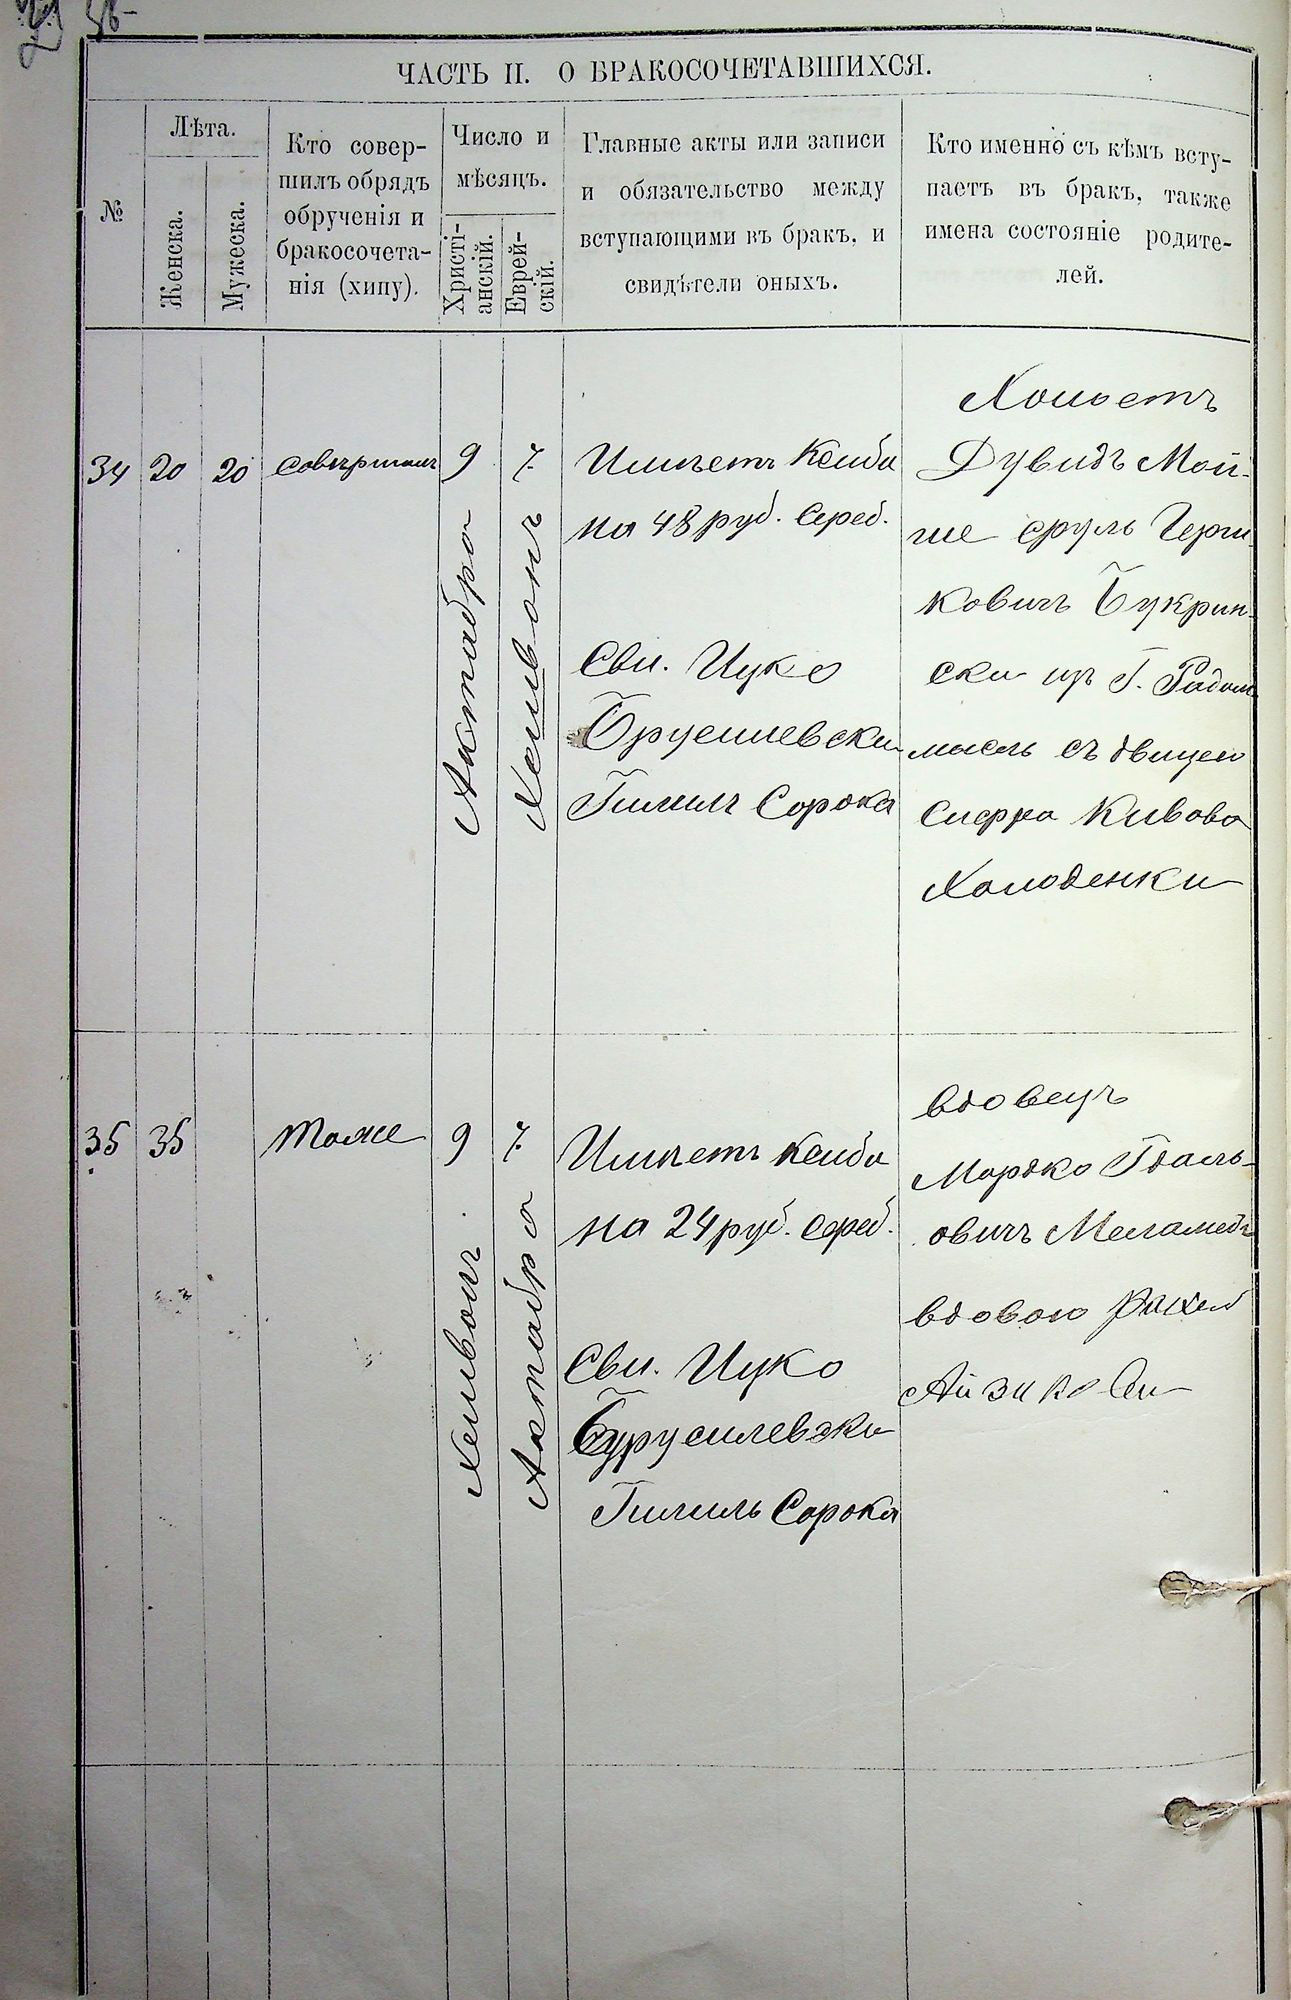 36
ЧАСТЬ II. О БРАКОСОЧЕТАВШИХСЯ.
№
Лѣта.
Женска.
Мужеска.
Кто совер-
шилъ обрядъ
обрученія и
бракосочета-
нія (хипу).
Число и
мѣсяцъ.
Христі-
анскій.
Еврей-
скій.
Главные акты или записи
и обязательство между
вступающими въ бракъ, и
свидѣтели оныхъ.
Кто именно съ кѣмъ всту-
паетъ въ бракъ, также
имена состояніе родите-
лей.
34
20
20
9
Актабра
7.
Хешвонъ
Имѣетъ Ксиба
на 48 руб. Сереб.
Сви. Ицко
Брусилевски
Сорока
Холостъ
Дувидъ Мой-
ше сруль Герш
ковичъ Букрин-
ски изъ Г. Радом
мысль съ двицею
Сифра Кивова
Холоденки
35
35
Тоже
9
Хешвонъ
7.
Актабра
Имѣетъ Ксиба
на 24 руб. Сереб.
Сви. Ицко
Бурусилевски
Сорока
вдовецъ
Мордко Гдаль-
овичъ Меламедъ
вдовою Рахел